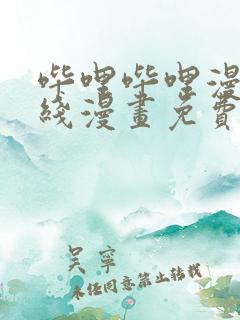 哔哩哔哩漫
线漫畫免費
吴寧
未经同意禁止转载